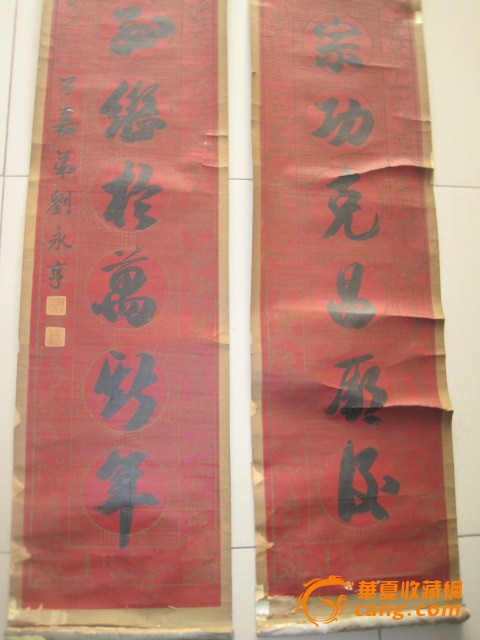 宗功克昌厥後
孫繼於萬斯年
子嘉弟劉永亨
華夏收藏網
cang.com